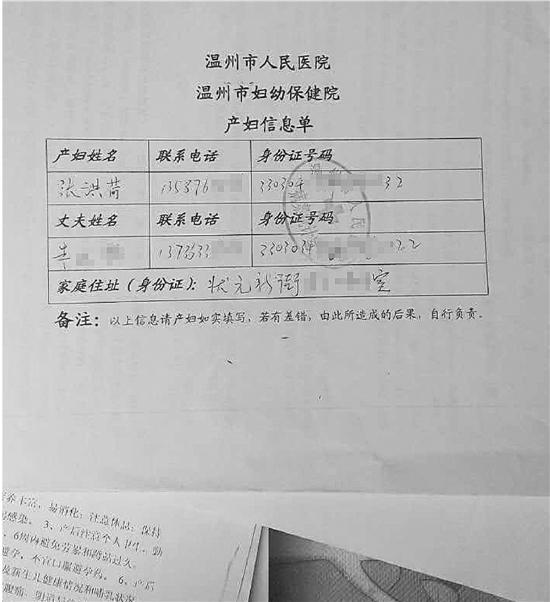 温州市人民医院
温州市妇幼保健院
产妇信息单
产妇姓名 联系电话 身份证号码
张洪 135876 330304 32
丈夫姓名 联系电话 身份证号码
137 330304 22
家庭住址（身份证）：状元新街 室
备注：以上信息请产妇如实填写，若有差错，由此所造成的后果，自行负责。
易消化；注意休息；保持
感染。 3、产后注意个人卫生，勤
6周内避免劳累和站过久。
避孕，不宜口服避孕药。 6、产后
及新生儿健康情况和哺乳状况